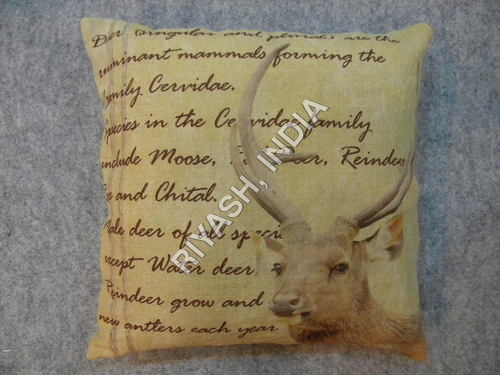 Deer (singular and plural) are the
ruminant mammals forming the
family Cervidae.
Species in the Cervidae family
include Moose, Deer, Reindeer
and Chital.
Male deer of all species
except Water deer
Reindeer grow and
new antlers each year
RIYASH, INDIA